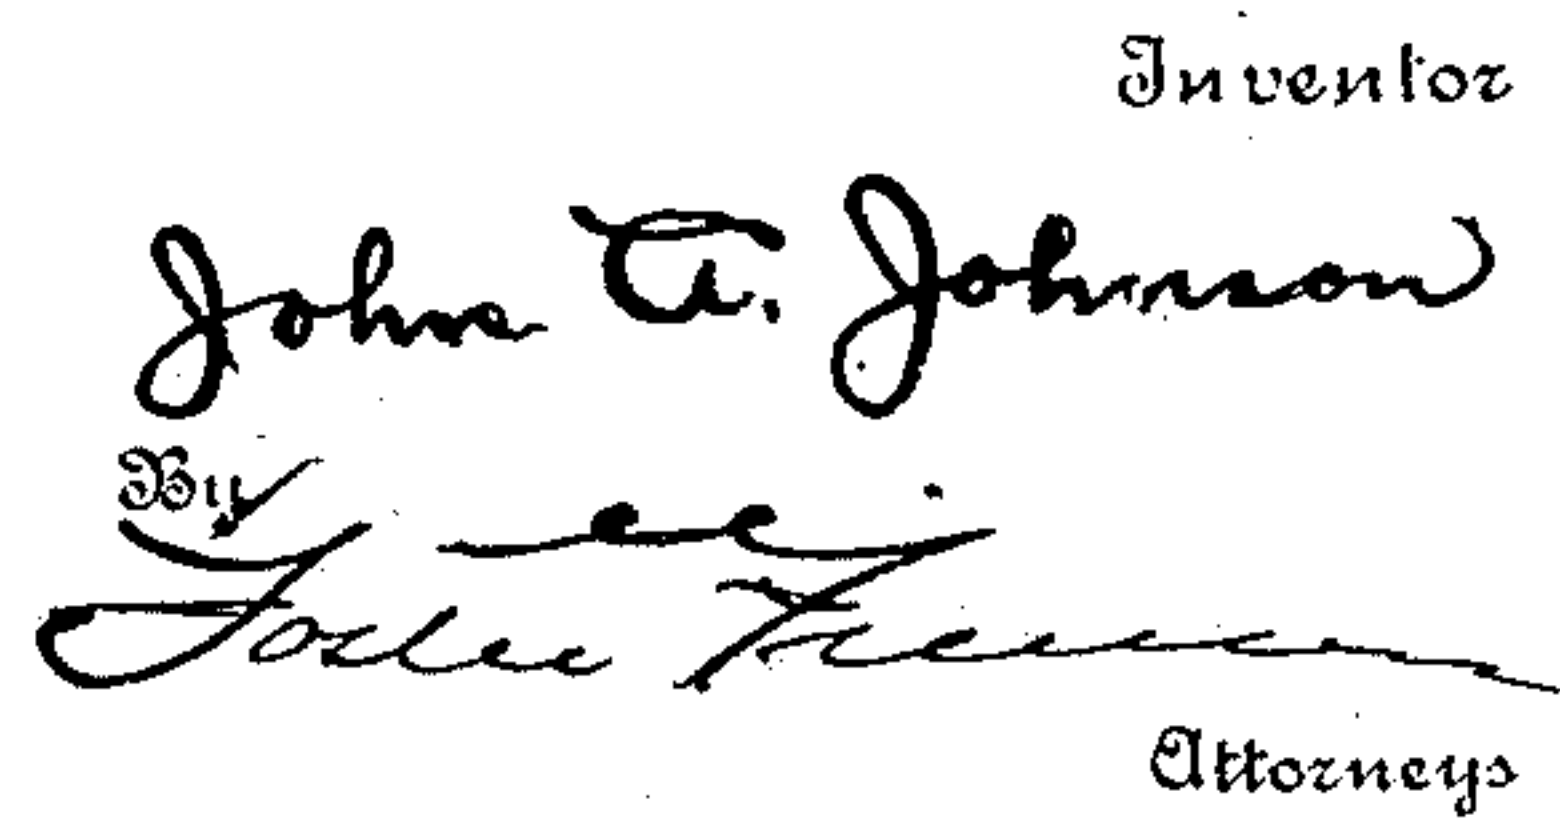 Inventor
John A. Johnson
By
Attorneys